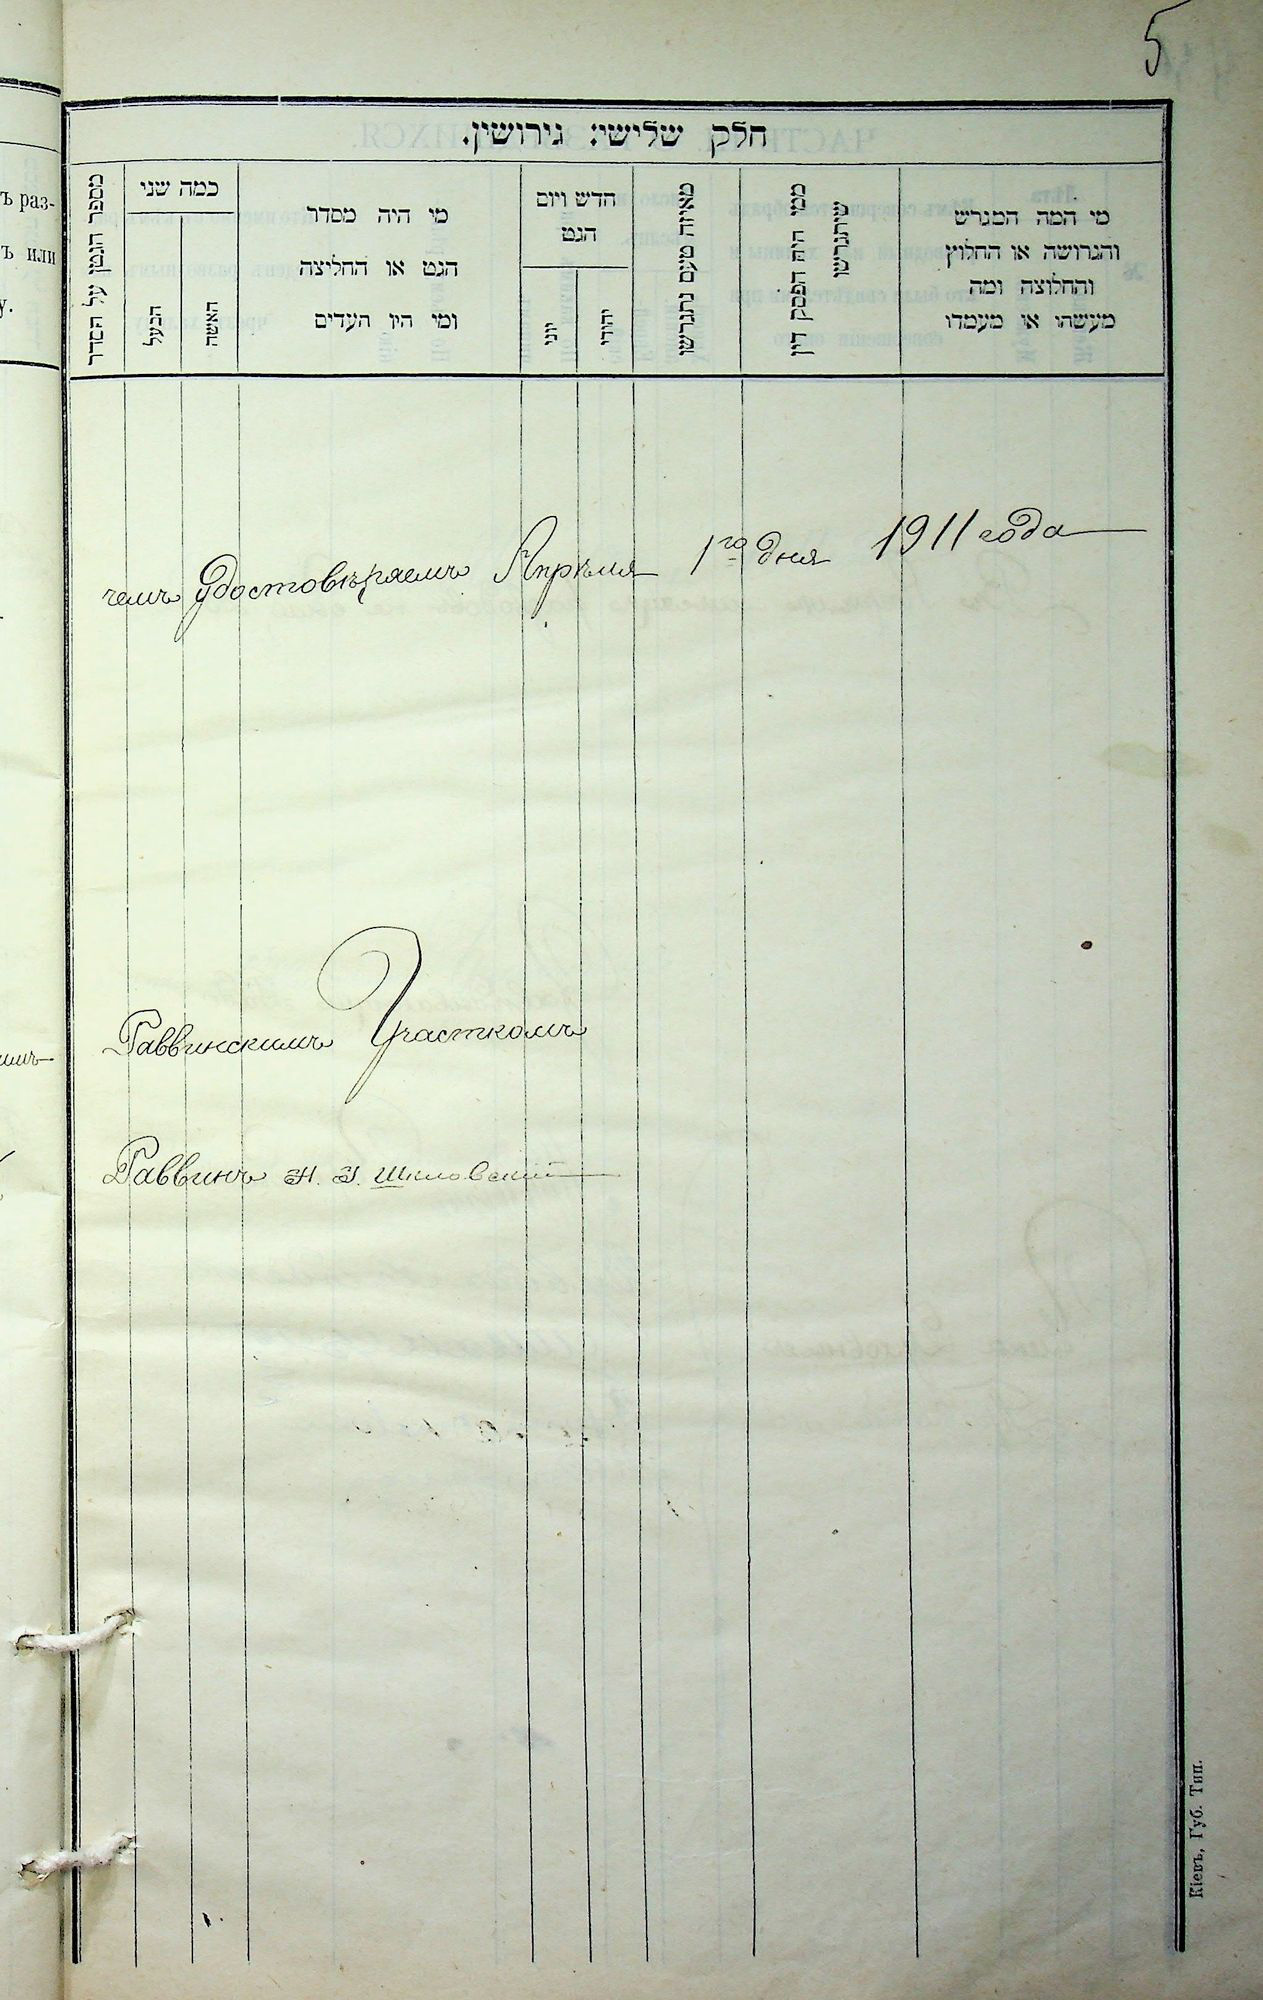 5
חלק שלישי׃ גירושין.
מספר הגטין על הסדר
כמה שני
הבעל
האשה
מי היה מסדר
הגט או החליצה
ומי היו העדים
חדש ויום
הגט
יוני
יהודי
מאיזה טעם נתגרשו
ממי היה הפסק דין
שיתגרשו
מי המה המגרש
והגרושה או החלוץ
והחלוצה ומה
מעשהו או מעמדו
ъ раз-
ъ или
у.
чемъ удостовѣряемъ Апрѣля 1го дня 1911 года
Раввинскимъ Участкомъ
Раввинъ Н. І. Шкловскій
Кіевъ, Губ. Тип.